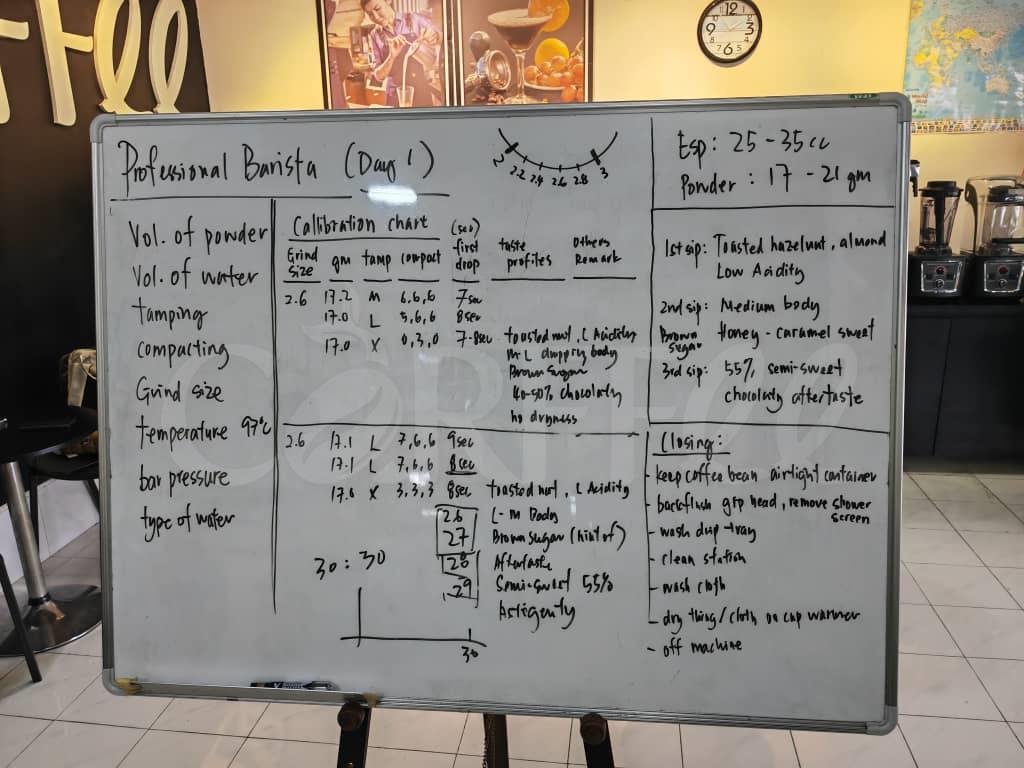 Professional Barista (Day 1)
2 2.2 2.4 2.6 2.8 3
Esp: 25 - 35cc
Powder: 17 - 21 gm
Vol. of powder
Vol. of water
tamping
compacting
Grind size
temperature 97°C
bar pressure
type of water
Callibration chart
Grind size
gm
tamp
compact
(sec) first drop
taste profiles
Others Remark
2.6 17.2 M 6,6,6 7sec
17.0 L 5,6,6 8sec
17.0 X 0,3,0 7-8sec toasted nut, L Acidity
M-L body
Brown Sugar
40-50% chocolaty
no dryness
2.6 17.1 L 7,6,6 9sec
17.1 L 7,6,6 8sec
17.0 X 3,3,3 8sec toasted nut, L Acidity
26 L-M Body
27 Brown sugar (hint of)
28 Aftertaste
29 Semi-sweet 55%
Astigenty
30 : 30
30
1st sip: Toasted hazelnut, almond
Low Acidity
2nd sip: Medium body
Brown sugar Honey - caramel sweet
3rd sip: 55% semi-sweet
chocolaty aftertaste
Closing:
- keep coffee bean airtight container
- backflush grp head, remove shower screen
- wash drip tray
- clean station
- wash cloth
- dry thing/cloth on cup warmer
- off machine
CORFFEE
12 3 6 9